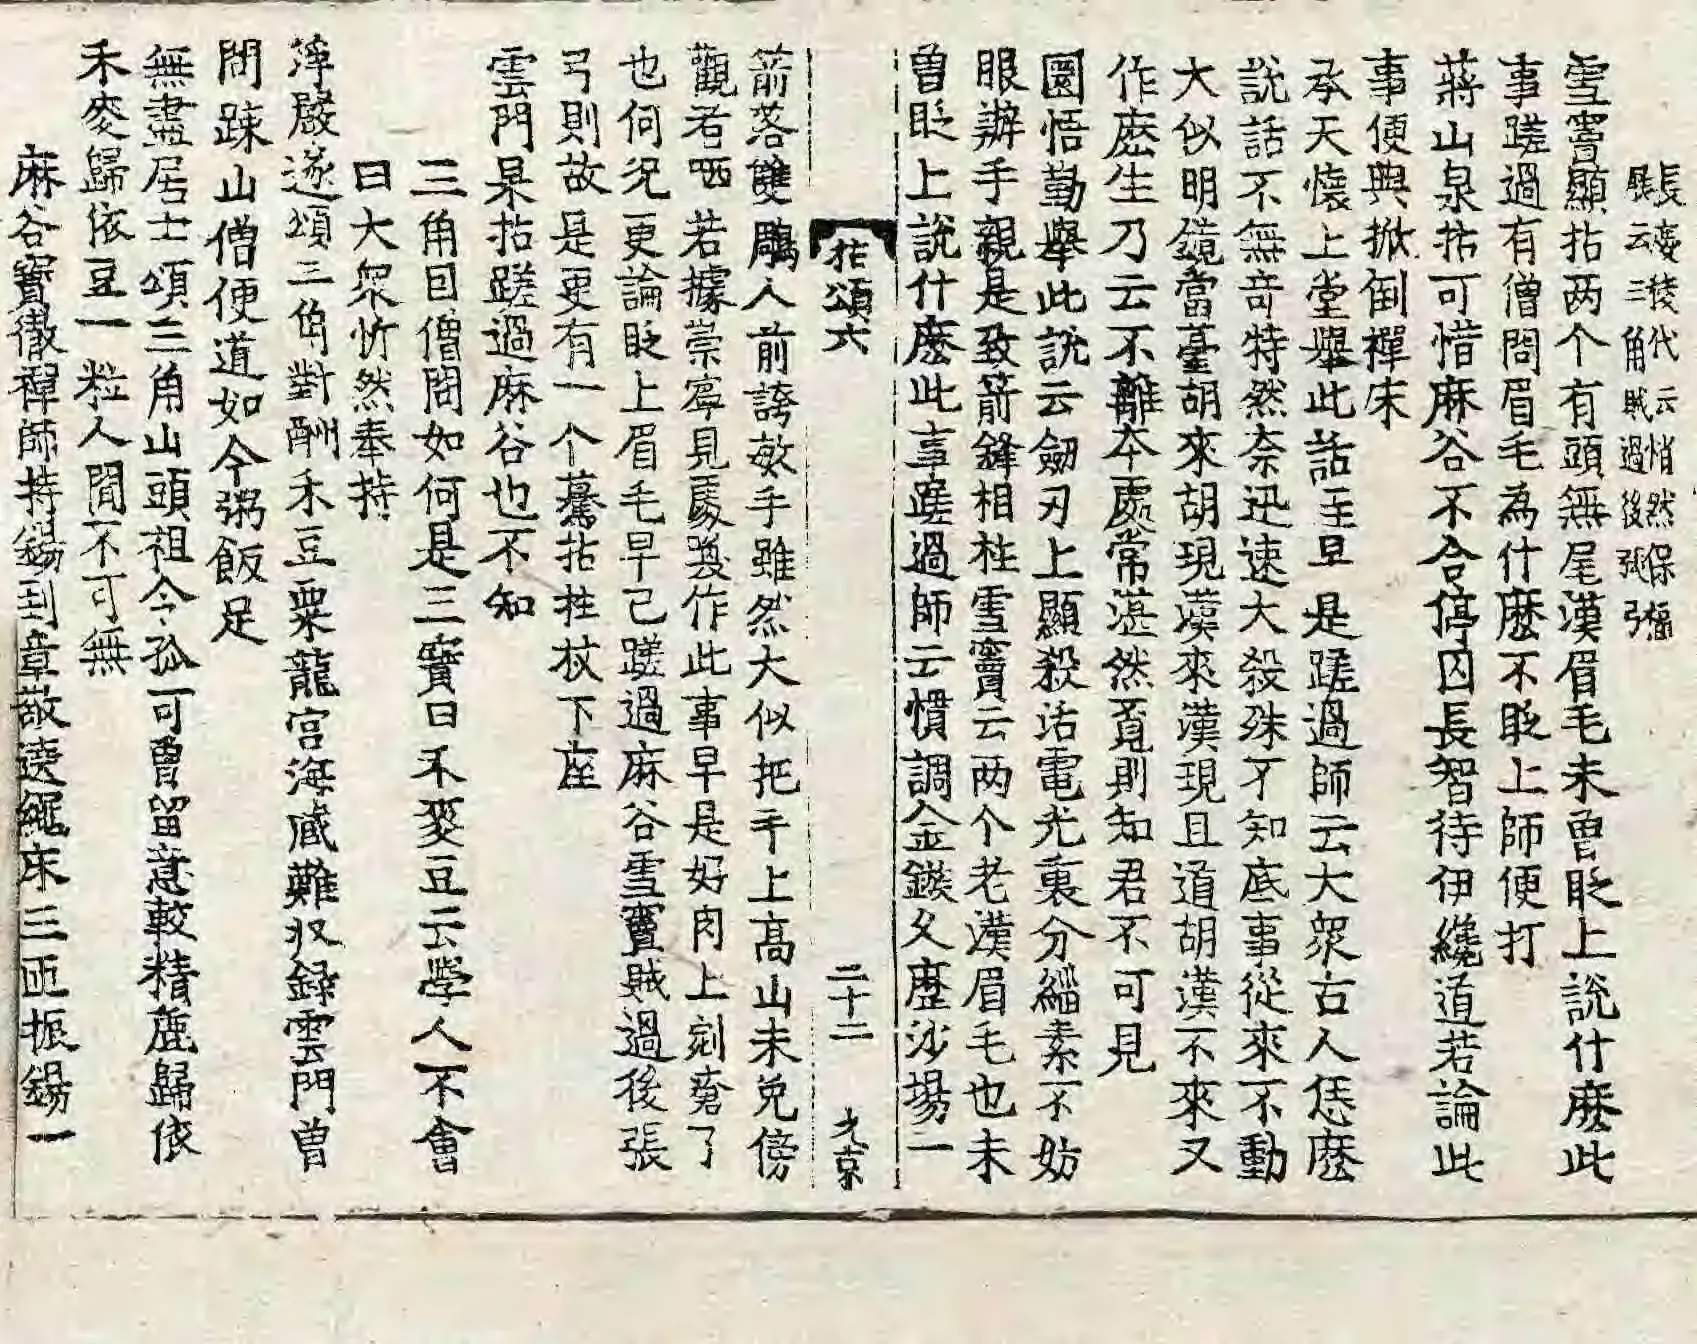 長慶稜代云悄然保福
展云三角賊過後張弓
雪竇顯拈两个有頭無尾漢眉毛未曾眨上說什麽此
事蹉過有僧問眉毛為什麽不眨上師便打
蔣山泉拈可惜麻谷不合停囚長智待伊纔道若論此
事便與掀倒禪床
承天懷上堂舉此話至且是蹉過師云大衆古人恁麽
說話不無奇特然奈迅速大殺殊不知底事從來不動
大似明鏡當臺胡來胡現漢來漢現且道胡漢不來又
作麽生乃云不離本處常湛然覔則知君不可見
圜悟勤舉此說云劒刃上顯殺活電光裏分緇素不妨
眼辦手親是致箭鋒相拄雪竇云两个老漢眉毛也未
曾眨上說什麽此事蹉過師云慣調金鏃久歷沙場一
拈頌六 二十二
箭落雙鵰人前誇敏手雖然大似把手上高山未免傍
觀者哂若據崇寧見處喚作此事早是好肉上剜瘡了
也何況更論眨上眉毛早已蹉過麻谷雪竇賊過後張
弓則故是更有一个驀拈拄杖下座
雲門杲拈蹉過麻谷也不知
三角因僧問如何是三寳曰禾麥豆云學人不會
曰大衆忻然奉持
淨嚴遂頌三角對酬禾豆粟龍宮海藏難収録雲門曾
問踈山僧便道如今粥飯足
無盡居士頌三角山頭祖令孤可曾留意較精麁歸依
禾麥歸依豆一粒人閒不可無
麻谷寳徹禪師持錫到章敬遶繩床三匝振錫一